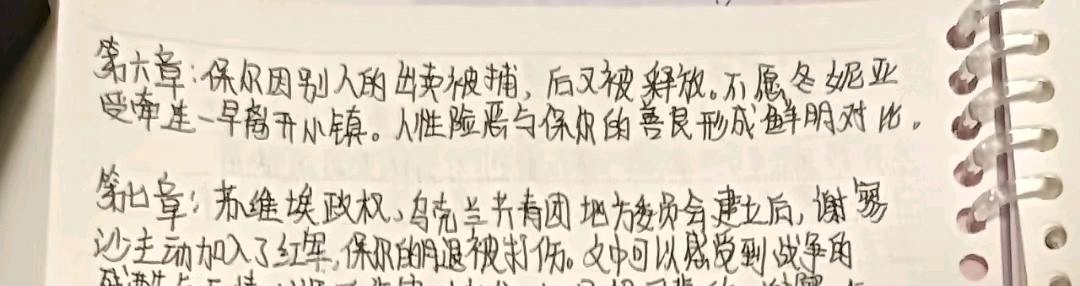 第六章:保尔因别人的出卖被捕,后又被释放。不愿冬妮亚
受牵连一早离开小镇。人性险恶与保尔的善良形成鲜明对比。
第七章:苏维埃政权、乌克兰共青团地方委员会建立后,谢廖
沙主动加入了红军,保尔的腿被打伤。文中可以感受到战争的